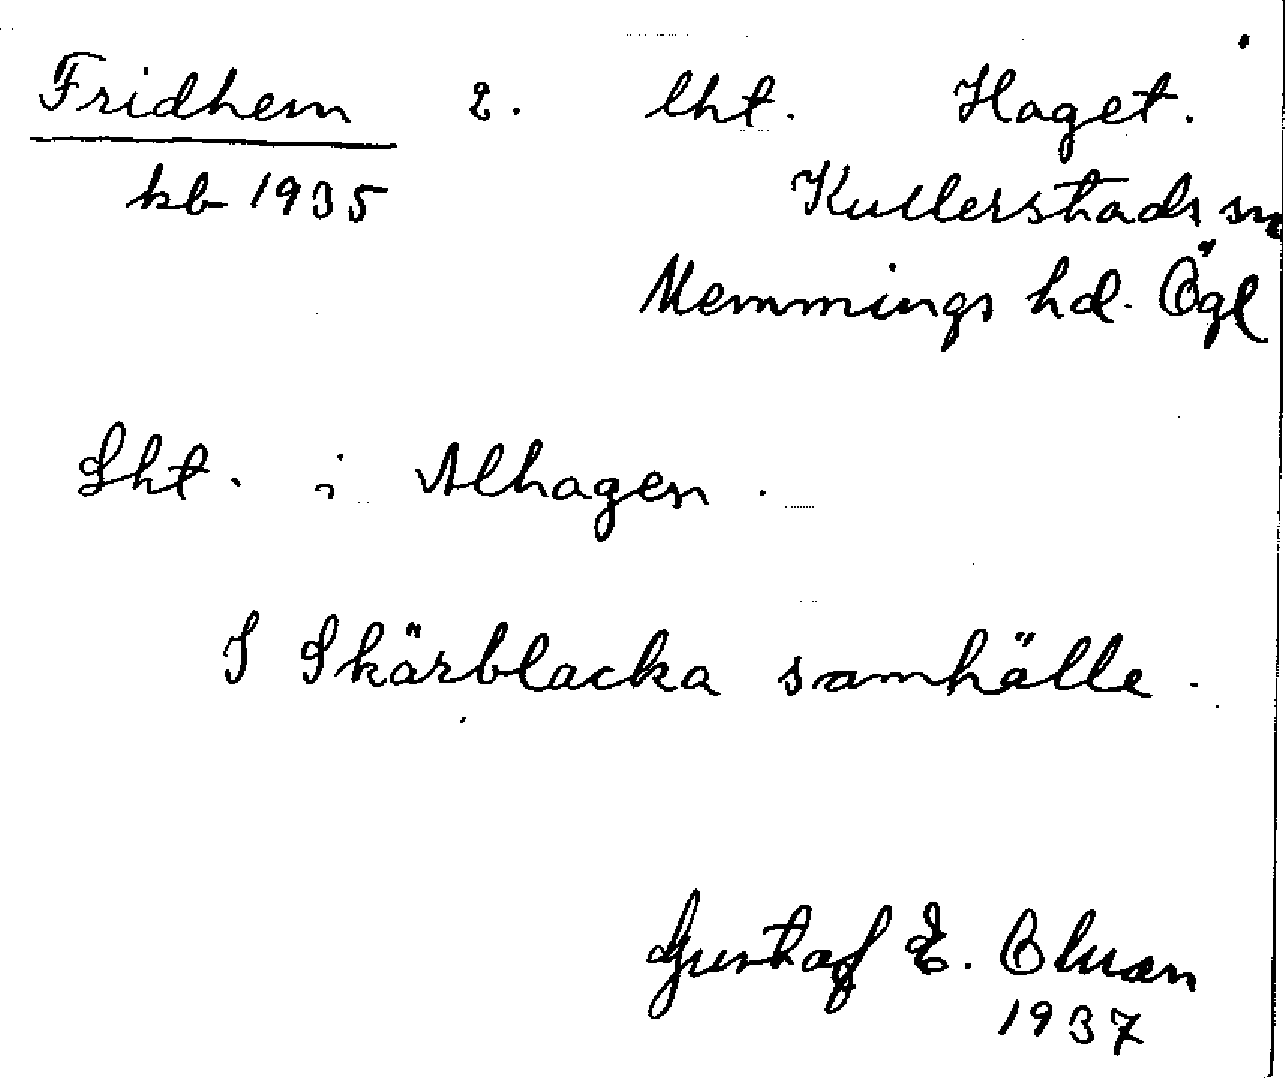 Fridhem 2. lht. Haget.
kb 1935 Kullerstads sn
Memmings hd. Ögl
Lht. i Alhagen.
I Skärblacka samhälle.
Gustaf E. Olsson
1937